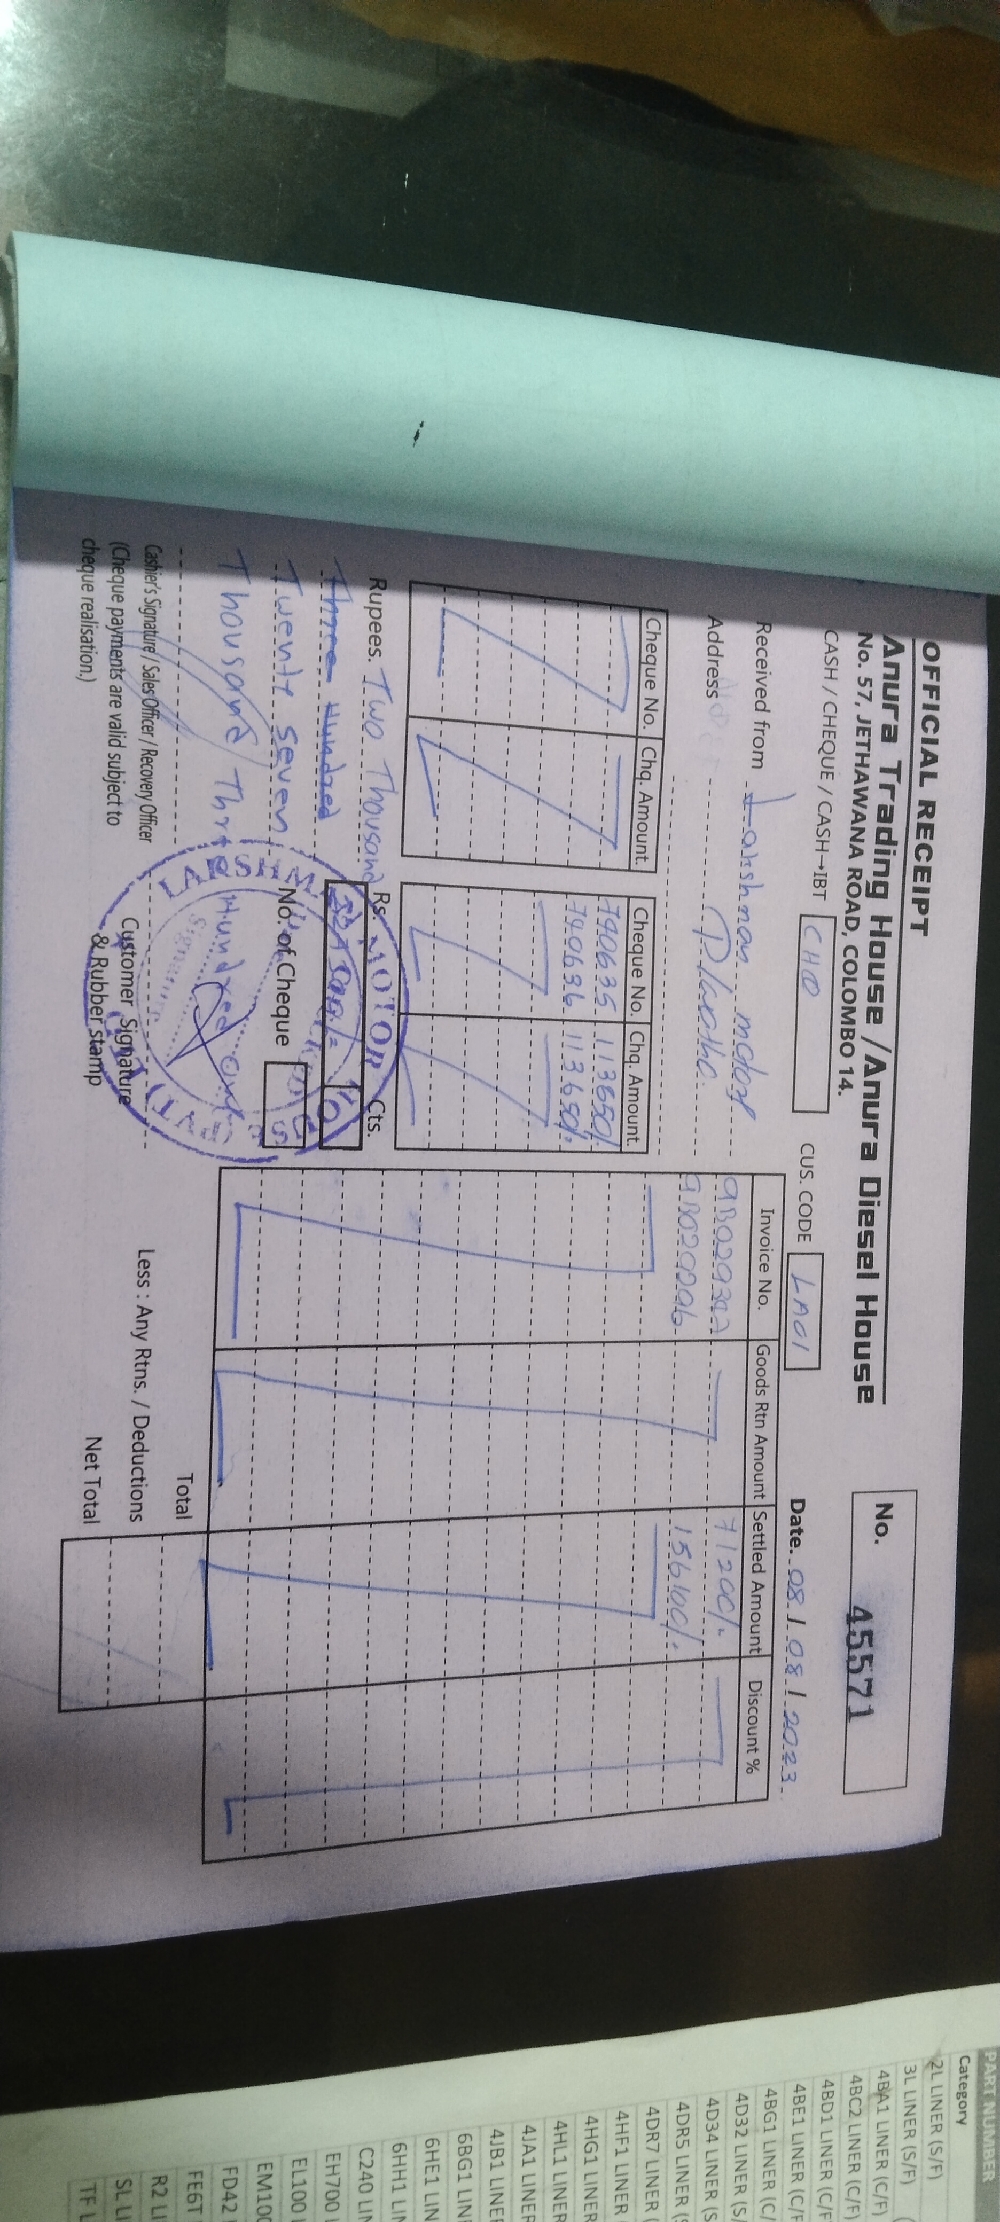 OFFICIAL RECEIPT
Anura Trading House / Anura Diesel House
No. 57, JETHAWANA ROAD, COLOMBO 14.
No. 45571
CASH / CHEQUE / CASH→IBT CHQ
CUS. CODE LA01
Date. 08 / 08 / 2023
Received from Lakshman motor
Address
Cheque No. Chq. Amount.
Cheque No. Chq. Amount.
790635 113650/-
790636 113650/-
Invoice No. Goods Rtn Amount Settled Amount Discount %
71200/-
156100/-
Rupees. Two Thousand
Three Hundred
Twenty seven
Thousand Three Hundred only
Rs. Cts.
No. of Cheque
Cashier's Signature / Sales Officer / Recovery Officer
(Cheque payments are valid subject to
cheque realisation.)
Customer Signature
& Rubber stamp
Total
Less : Any Rtns. / Deductions
Net Total
PART NUMBER
Category
2L LINER (S/F)
3L LINER (S/F)
4BA1 LINER (C/F)
4BC2 LINER (C/F)
4BD1 LINER (C/F
4BE1 LINER (C/F
4BG1 LINER (C/
4D32 LINER (S/
4D34 LINER (S
4DR5 LINER (
4DR7 LINER (
4HF1 LINER
4HG1 LINER
4HL1 LINER
4JA1 LINER
4JB1 LINER
6BG1 LINE
6HE1 LIN
6HH1 LIN
C240 LIN
EH700
EL100
EM100
FD42
FE6T
R2 LI
SL LI
TF L